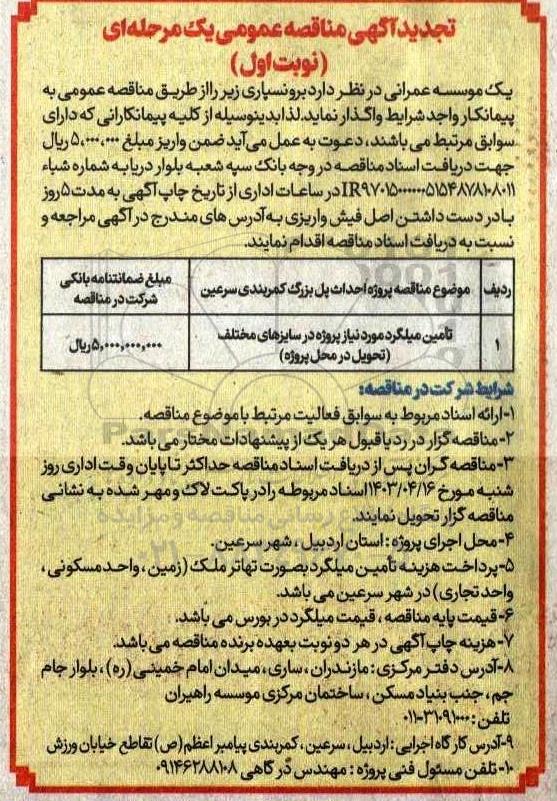 تجدید آگهی مناقصه عمومی یک مرحله‌ای
(نوبت اول)
یک موسسه عمرانی در نظر دارد برونسپاری زیر را از طریق مناقصه عمومی به
پیمانکار واجد شرایط واگذار نماید. لذا بدینوسیله از کلیه پیمانکارانی که دارای
سوابق مرتبط می باشند، دعوت به عمل می آید ضمن واریز مبلغ ۵,۰۰۰,۰۰۰ ریال
جهت دریافت اسناد مناقصه در وجه بانک سپه شعبه بلوار دریا به شماره شباء
در ساعات اداری از تاریخ چاپ آگهی به مدت ۵ روز
با در دست داشتن اصل فیش واریزی به آدرس های مندرج در آگهی مراجعه و
نسبت به دریافت اسناد مناقصه اقدام نمایند.
ردیف موضوع مناقصه پروژه احداث پل بزرگ کمربندی سرعین مبلغ ضمانتنامه بانکی شرکت در مناقصه
۱ تأمین میلگرد مورد نیاز پروژه در سایزهای مختلف (تحویل در محل پروژه) ۵,۰۰۰,۰۰۰,۰۰۰ ریال
شرایط شرکت در مناقصه:
۱-ارائه اسناد مربوط به سوابق فعالیت مرتبط با موضوع مناقصه.
۲-مناقصه گزار در رد یا قبول هر یک از پیشنهادات مختار می باشد.
۳-مناقصه گران پس از دریافت اسناد مناقصه حداکثر تا پایان وقت اداری روز
شنبه مورخ ۱۴۰۳/۰۴/۱۶ اسناد مربوطه را در پاکت لاک و مهر شده به نشانی
مناقصه گزار تحویل نمایند.
۴-محل اجرای پروژه: استان اردبیل، شهر سرعین.
۵-پرداخت هزینه تأمین میلگرد بصورت تهاتر ملک (زمین، واحد مسکونی،
واحد تجاری) در شهر سرعین می باشد.
۶-قیمت پایه مناقصه، قیمت میلگرد در بورس می باشد.
۷-هزینه چاپ آگهی در هر دو نوبت بعهده برنده مناقصه می باشد.
۸-آدرس دفتر مرکزی: مازندران، ساری، میدان امام خمینی(ره)، بلوار جام
جم، جنب بنیاد مسکن، ساختمان مرکزی موسسه راهیران
تلفن: ۳۱۰۹۱۰۰۰-۰۱۱
۹-آدرس کارگاه اجرایی: اردبیل، سرعین، کمربندی پیامبر اعظم(ص) تقاطع خیابان ورزش
۱۰-تلفن مسئول فنی پروژه: مهندس دُر گاهی ۰۹۱۴۶۲۸۸۱۰۸